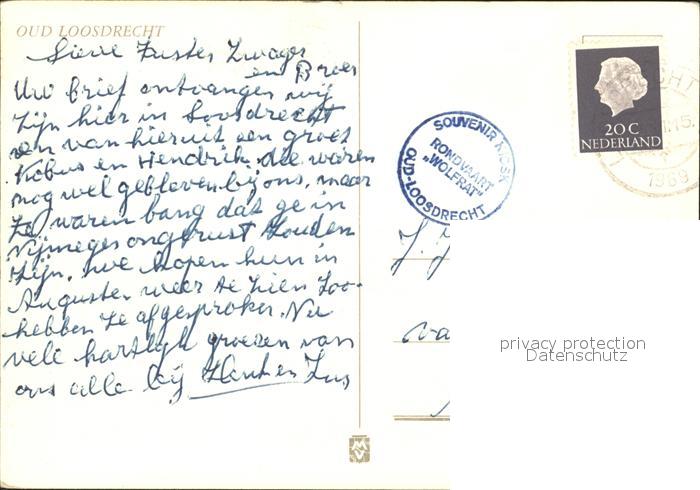 OUD LOOSDRECHT
Lieve Zuster Zwager
en Broer
Uw brief ontvangen wij
zijn hier in Loosdrecht
en van hieruit een groet
Kobus en Hendrik die waren
nog wel gebleven bij ons, maar
ze waren bang dat ge in
Nijmegen ongerust zouden
zijn. we hopen hun in
Augustus weer te zien zoo
hebben ze afgesproken. Nu
vele hartelijk groeten van
ons alle bij
SOUVENIR KIOSK
RONDVAART
„WOLFRAT"
OUD-LOOSDRECHT
20 C
NEDERLAND
1969
J.
va
privacy protection
Datenschutz